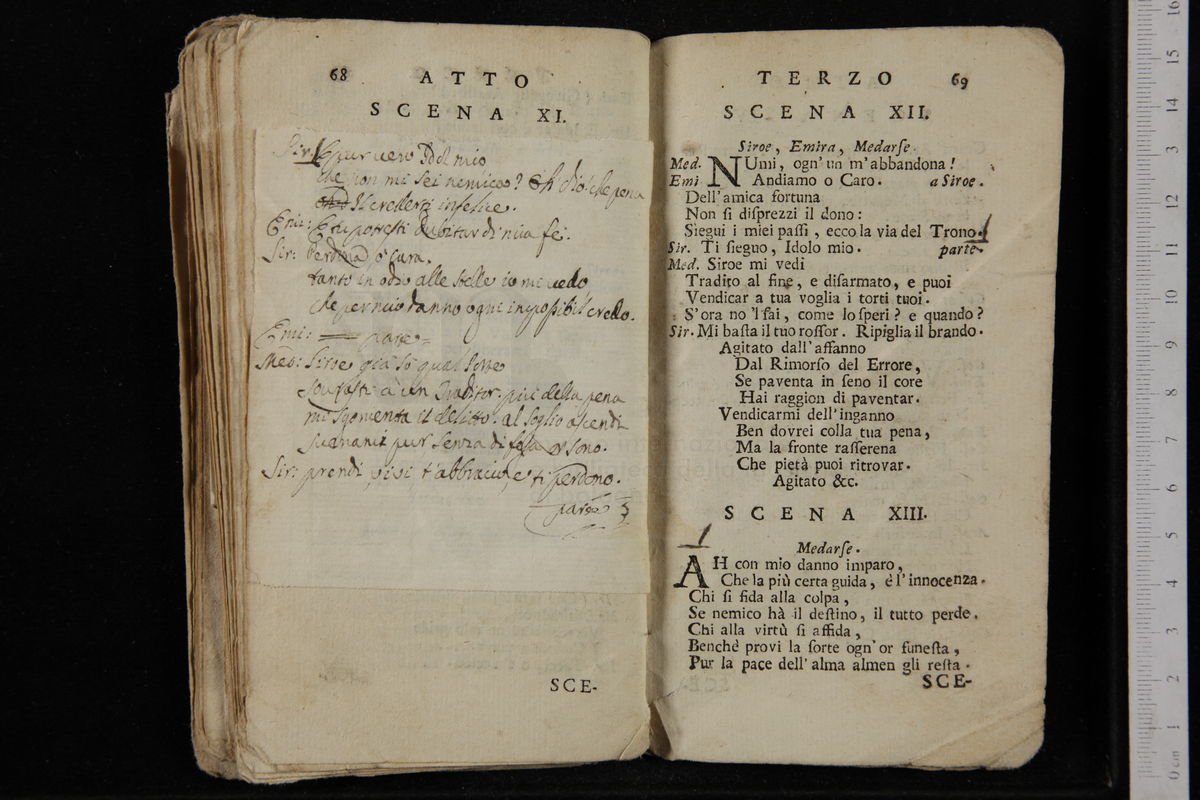 68 ATTO
SCENA XI.
Sir. E pur vero Idol mio
che non mi sei nemico? Oh dio! che pena
Il crederti infelice.
Emi: E tu potesti dubitar di mia fè.
Sir: Perdona o cara.
tanto in odio alle stelle io mi vedo
che per mio danno ogni impossibil credo.
Emi: parte
Med: Siroe già sò qual sorte
Sovrasti à un Traditor. più della pena
mi sgomenta il delitto. al soglio ascendi
svenami pur senza difesa or sono.
Sir: prendi, vivi t'abbraccio, e ti perdono.
parte
SCE-
TERZO 69
SCENA XII.
Siroe, Emira, Medarſe.
Med. NUmi, ogn' un m'abbandona!
Emi Andiamo o Caro. a Siroe.
Dell'amica fortuna
Non ſi diſprezzi il dono:
Siegui i miei paſſi, ecco la via del Trono.
Sir. Ti ſieguo, Idolo mio. parte.
Med. Siroe mi vedi
Tradito al fine, e diſarmato, e puoi
Vendicar a tua voglia i torti tuoi.
S'ora no 'l fai, come lo ſperi? e quando?
Sir. Mi baſta il tuo roſſor. Ripiglia il brando.
Agitato dall'affanno
Dal Rimorſo del Errore,
Se paventa in ſeno il core
Hai raggion di paventar.
Vendicarmi dell'inganno
Ben dovrei colla tua pena,
Ma la fronte raſſerena
Che pietà puoi ritrovar.
Agitato &c.
SCENA XIII.
Medarſe.
AH con mio danno imparo,
Che la più certa guida, è l'innocenza.
Chi ſi fida alla colpa,
Se nemico hà il deſtino, il tutto perde.
Chi alla virtù ſi affida,
Benchè provi la ſorte ogn'or funeſta,
Pur la pace dell'alma almen gli reſta.
SCE-